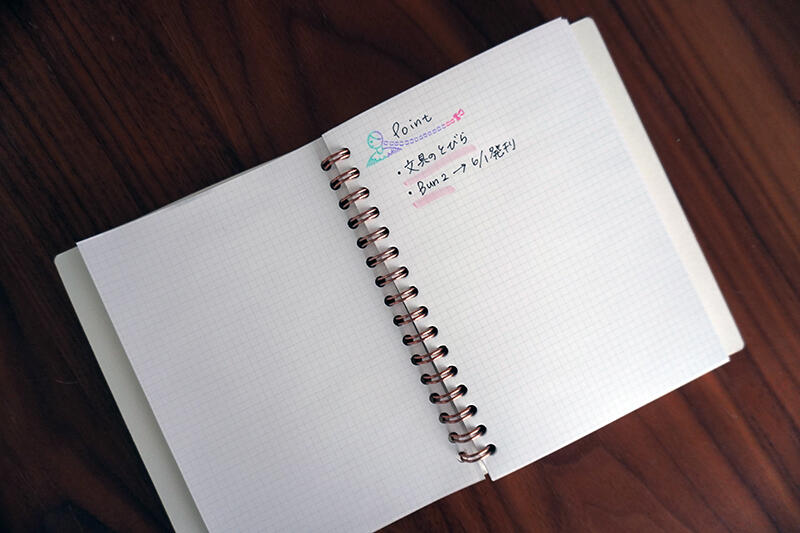 Point
・文具のとびら
・Bun2→6/1発刊